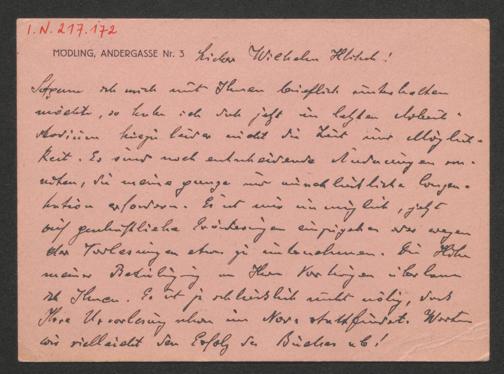 I.N. 217.172
MÖDLING, ANDERGASSE Nr. 3 Lieber Wilhelm
ich mich mit Ihnen brieflich unterhalten
möchte, so habe ich doch jetzt im letzten Arbeits-
stadium hiezu leider nicht die Zeit und Möglich-
keit. Es sind noch entscheidende Änderungen von-
nöten, die meine ganze und ausschließliche Konzen-
tration erfordern. Es ist mir unmöglich, jetzt
auf geschäftliche Erörterungen einzugehen oder wegen
der Vorlesungen etwas zu unternehmen. Die Höhe
meiner Beteiligung an Ihren Vorträgen überlasse
ich Ihnen. Es ist ja schließlich nicht nötig, daß
Ihre Vorlesung schon im Nov. stattfindet. Warten
wir vielleicht den Erfolg des Buches ab!